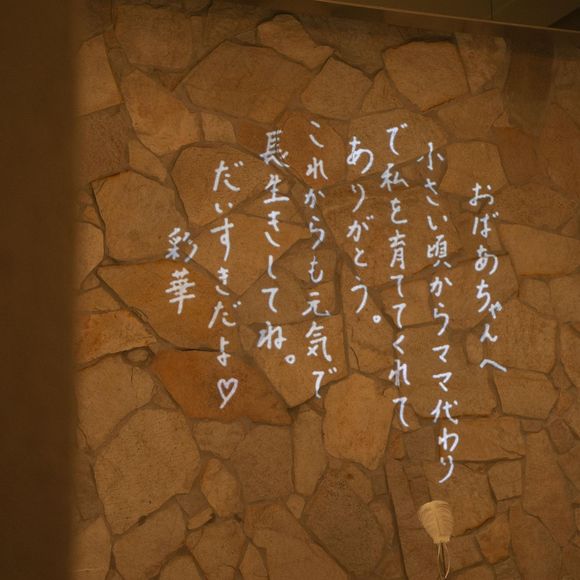 おばあちゃんへ
小さい頃からママ代わり
で私を育ててくれて
ありがとう。
これからも元気で
長生きしてね。
だいすきだよ♡
彩華